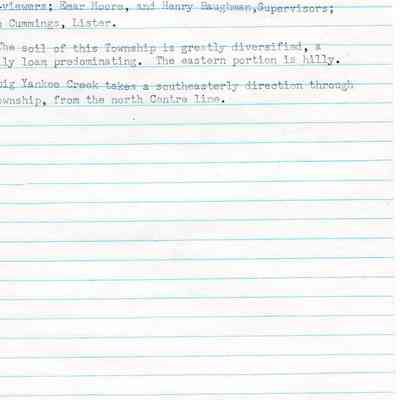 viewers; Emar Moore, and Henry Baughman,Supervisors;
Cummings, Lister.
The soil of this Township is greatly diversified, a
ly loam predominating. The eastern portion is hilly.
Big Yankee Creek takes a southeasterly direction through
ownship, from the north Centre line.